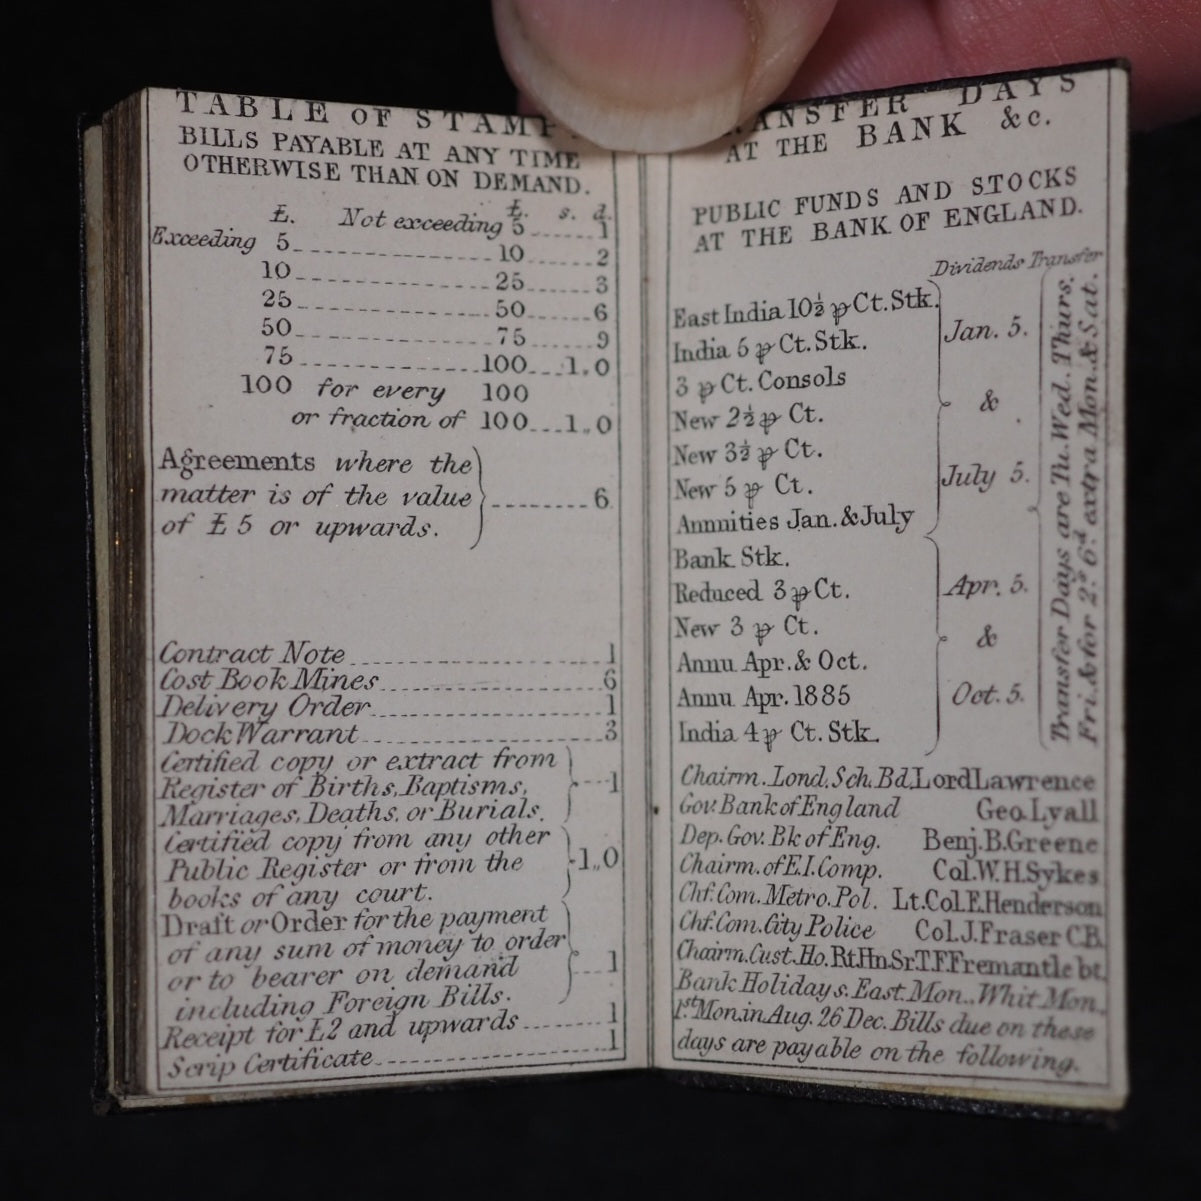 TABLE OF STAMP
BILLS PAYABLE AT ANY TIME
OTHERWISE THAN ON DEMAND.
£. Not exceeding £. 5 s. d. 1
Exceeding 5 10 2
10 25 3
25 50 6
50 75 9
75 100 1,,0
100 for every 100
or fraction of 100 1,,0
Agreements where the
matter is of the value 6
of £5 or upwards.
Contract Note 1
Cost Book Mines 6
Delivery Order 1
Dock Warrant 3
Certified copy or extract from
Register of Births, Baptisms, 1
Marriages, Deaths, or Burials.
Certified copy from any other
Public Register or from the 1,,0
books of any court.
Draft or Order for the payment
of any sum of money to order
or to bearer on demand 1
including Foreign Bills.
Receipt for £2 and upwards 1
Scrip Certificate 1
ANSFER DAYS
AT THE BANK &c.
PUBLIC FUNDS AND STOCKS
AT THE BANK OF ENGLAND.
Dividends Transfer
East India 10½ ⅌ Ct. Stk.
India 5 ⅌ Ct. Stk. Jan. 5.
3 ⅌ Ct. Consols
New 2½ ⅌ Ct. &
New 3½ ⅌ Ct.
New 5 ⅌ Ct. July 5.
Annuities Jan. & July
Bank Stk.
Reduced 3 ⅌ Ct. Apr. 5.
New 3 ⅌ Ct. &
Annu Apr. & Oct.
Annu Apr. 1885 Oct. 5.
India 4 ⅌ Ct. Stk.
Transfer Days are Tu. Wed. Thurs.
Fri. & for 2s. 6d. extra Mon. & Sat.
Chairm. Lond. Sch. Bd, Lord Lawrence
Gov. Bank of England Geo. Lyall
Dep. Gov. Bk of Eng. Benj. B. Greene
Chairm. of E.I. Comp. Col. W.H. Sykes
Chf. Com. Metro. Pol. Lt. Col. E. Henderson
Chf. Com. City Police Col. J. Fraser C.B.
Chairm. Cust. Ho. Rt Hn. Sr T.F. Fremantle bt.
Bank Holidays. East. Mon., Whit Mon.,
1st Mon. in Aug. 26 Dec. Bills due on these
days are payable on the following.